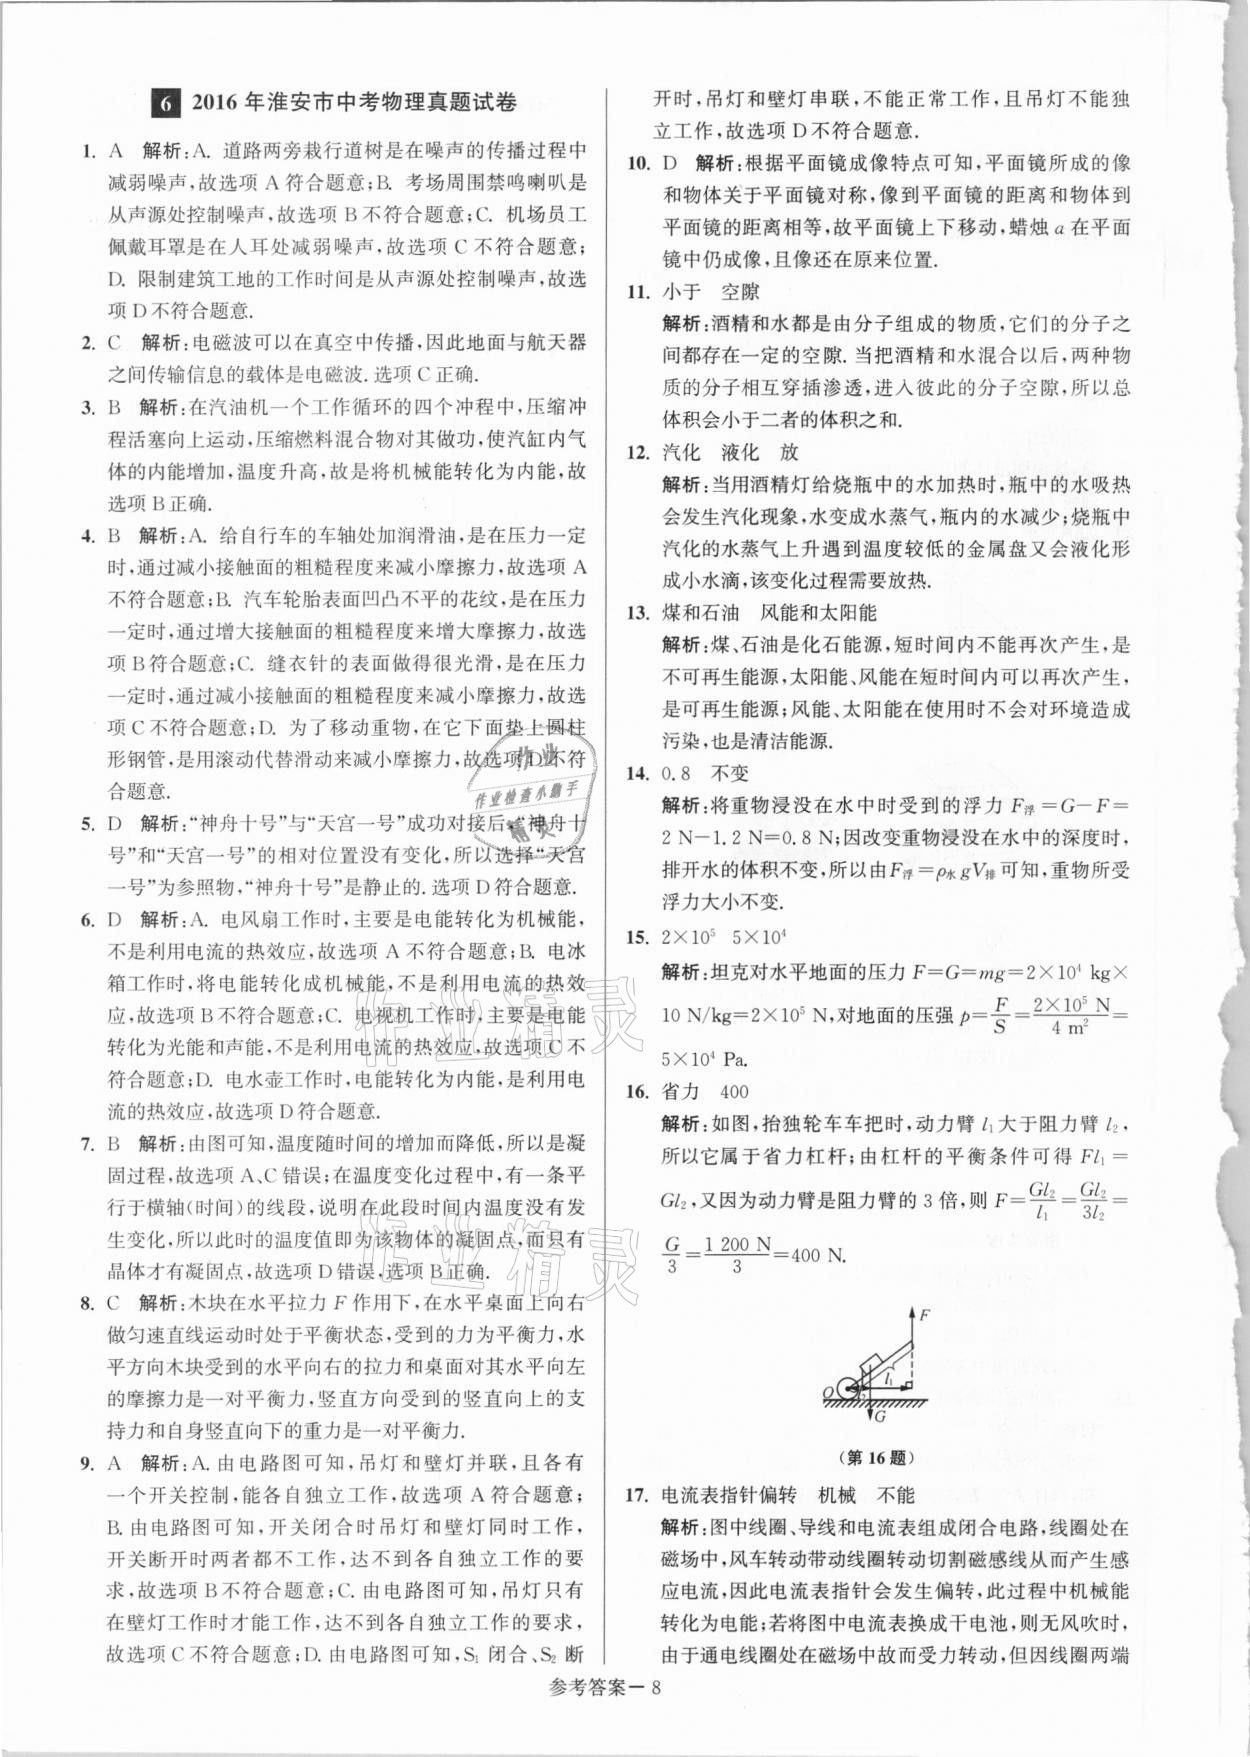 6 2016年淮安市中考物理真题试卷
1. A 解析:A. 道路两旁栽行道树是在噪声的传播过程中
减弱噪声,故选项 A 符合题意;B. 考场周围禁鸣喇叭是
从声源处控制噪声,故选项 B不符合题意;C. 机场员工
佩戴耳罩是在人耳处减弱噪声,故选项 C 不符合题意;
D. 限制建筑工地的工作时间是从声源处控制噪声,故选
项 D不符合题意.
2. C 解析:电磁波可以在真空中传播,因此地面与航天器
之间传输信息的载体是电磁波. 选项 C正确.
3. B 解析:在汽油机一个工作循环的四个冲程中,压缩冲
程活塞向上运动,压缩燃料混合物对其做功,使汽缸内气
体的内能增加,温度升高,故是将机械能转化为内能,故
选项 B正确.
4. B 解析:A. 给自行车的车轴处加润滑油,是在压力一定
时,通过减小接触面的粗糙程度来减小摩擦力,故选项 A
不符合题意;B. 汽车轮胎表面凹凸不平的花纹,是在压力
一定时,通过增大接触面的粗糙程度来增大摩擦力,故选
项 B符合题意;C. 缝衣针的表面做得很光滑,是在压力
一定时,通过减小接触面的粗糙程度来减小摩擦力,故选
项 C不符合题意;D. 为了移动重物,在它下面垫上圆柱
形钢管,是用滚动代替滑动来减小摩擦力,故选项 D不符
合题意.
5. D 解析:“神舟十号”与“天宫一号”成功对接后,“神舟十
号”和“天宫一号”的相对位置没有变化,所以选择“天宫
一号”为参照物,“神舟十号”是静止的. 选项 D符合题意.
6. D 解析:A. 电风扇工作时,主要是电能转化为机械能,
不是利用电流的热效应,故选项 A 不符合题意;B. 电冰
箱工作时,将电能转化成机械能,不是利用电流的热效
应,故选项 B不符合题意;C. 电视机工作时,主要是电能
转化为光能和声能,不是利用电流的热效应,故选项 C不
符合题意;D. 电水壶工作时,电能转化为内能,是利用电
流的热效应,故选项 D符合题意.
7. B 解析:由图可知,温度随时间的增加而降低,所以是凝
固过程,故选项 A、C错误;在温度变化过程中,有一条平
行于横轴(时间)的线段,说明在此段时间内温度没有发
生变化,所以此时的温度值即为该物体的凝固点,而只有
晶体才有凝固点,故选项 D错误,选项 B正确.
8. C 解析:木块在水平拉力 F 作用下,在水平桌面上向右
做匀速直线运动时处于平衡状态,受到的力为平衡力,水
平方向木块受到的水平向右的拉力和桌面对其水平向左
的摩擦力是一对平衡力,竖直方向受到的竖直向上的支
持力和自身竖直向下的重力是一对平衡力.
9. A 解析:A. 由电路图可知,吊灯和壁灯并联,且各有
一个开关控制,能各自独立工作,故选项 A符合题意;
B. 由电路图可知,开关闭合时吊灯和壁灯同时工作,
开关断开时两者都不工作,达不到各自独立工作的要
求,故选项 B不符合题意;C. 由电路图可知,吊灯只有
在壁灯工作时才能工作,达不到各自独立工作的要求,
故选项 C不符合题意;D. 由电路图可知,S₁ 闭合、S₂ 断
开时,吊灯和壁灯串联,不能正常工作,且吊灯不能独
立工作,故选项 D不符合题意.
10. D 解析:根据平面镜成像特点可知,平面镜所成的像
和物体关于平面镜对称,像到平面镜的距离和物体到
平面镜的距离相等,故平面镜上下移动,蜡烛 a 在平面
镜中仍成像,且像还在原来位置.
11. 小于 空隙
解析:酒精和水都是由分子组成的物质,它们的分子之
间都存在一定的空隙. 当把酒精和水混合以后,两种物
质的分子相互穿插渗透,进入彼此的分子空隙,所以总
体积会小于二者的体积之和.
12. 汽化 液化 放
解析:当用酒精灯给烧瓶中的水加热时,瓶中的水吸热
会发生汽化现象,水变成水蒸气,瓶内的水减少;烧瓶中
汽化的水蒸气上升遇到温度较低的金属盘又会液化形
成小水滴,该变化过程需要放热.
13. 煤和石油 风能和太阳能
解析:煤、石油是化石能源,短时间内不能再次产生,是
不可再生能源,太阳能、风能在短时间内可以再次产生,
是可再生能源;风能、太阳能在使用时不会对环境造成
污染,也是清洁能源.
14. 0.8 不变
解析:将重物浸没在水中时受到的浮力 F浮=G−F=
2 N−1.2 N=0.8 N;因改变重物浸没在水中的深度时,
排开水的体积不变,所以由F浮=ρ水gV排可知,重物所受
浮力大小不变.
15. 2×10⁵ 5×10⁴
解析:坦克对水平地面的压力 F=G=mg=2×10⁴ kg×
10 N/kg=2×10⁵ N,对地面的压强 p=F/S=2×10⁵ N/4 m²=
5×10⁴ Pa.
16. 省力 400
解析:如图,抬独轮车车把时,动力臂 l₁大于阻力臂 l₂,
所以它属于省力杠杆;由杠杆的平衡条件可得 Fl₁=
Gl₂,又因为动力臂是阻力臂的 3 倍,则 F=Gl₂/l₁=Gl₂/3l₂=
G/3=1 200 N/3=400 N.
F
O l₂ l₁
G
(第 16 题)
17. 电流表指针偏转 机械 不能
解析:图中线圈、导线和电流表组成闭合电路,线圈处在
磁场中,风车转动带动线圈转动切割磁感线从而产生感
应电流,因此电流表指针会发生偏转,此过程中机械能
转化为电能;若将图中电流表换成干电池,则无风吹时,
由于通电线圈处在磁场中故而受力转动,但因线圈两端
参考答案－8
作业
作业检查小助手
精灵
作业精灵
作业精灵